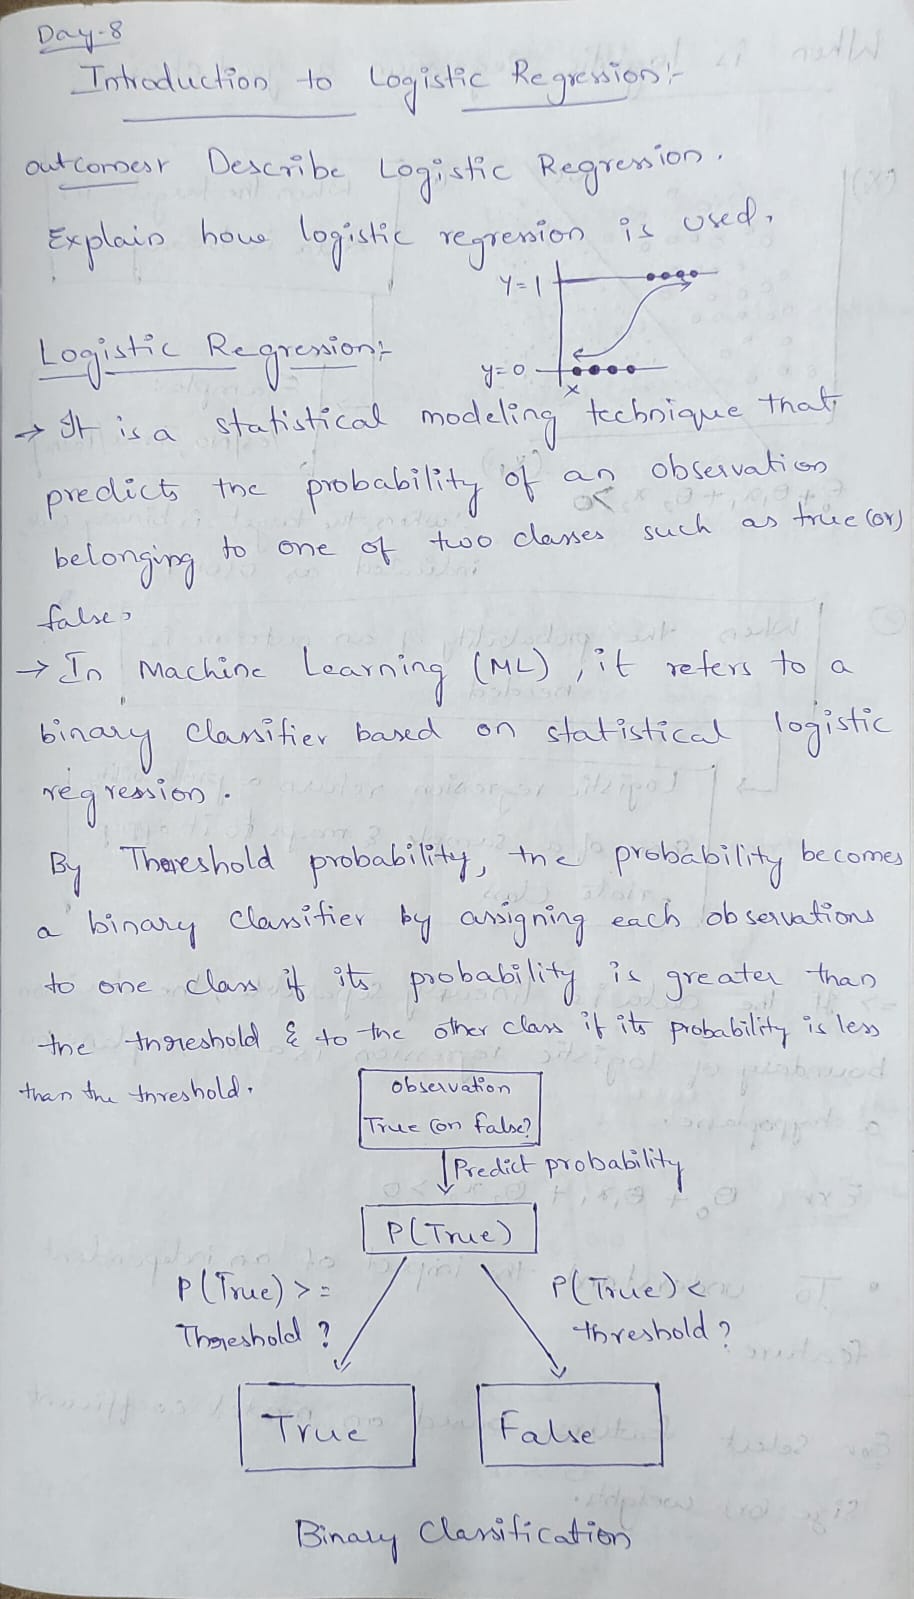 Day-8
Introduction to Logistic Regression:-
outcomes:- Describe Logistic Regression.
Explain how logistic regression is used.
Y=1
y=0
x
Logistic Regression:-
→ It is a statistical modeling technique that
predicts the probability of an observation
belonging to one of two classes such as true (or)
false.
→ In Machine Learning (ML), it refers to a
binary classifier based on statistical logistic
regression.
By Thereshold probability, the probability becomes
a binary classifier by assigning each observations
to one class if its probability is greater than
the threshold & to the other class if its probability is less
than the threshold.
Observation
True (or) false?
Predict probability
P(True)
P(True) >=
Threshold ?
P(True) <
threshold ?
True
False
Binary Classification